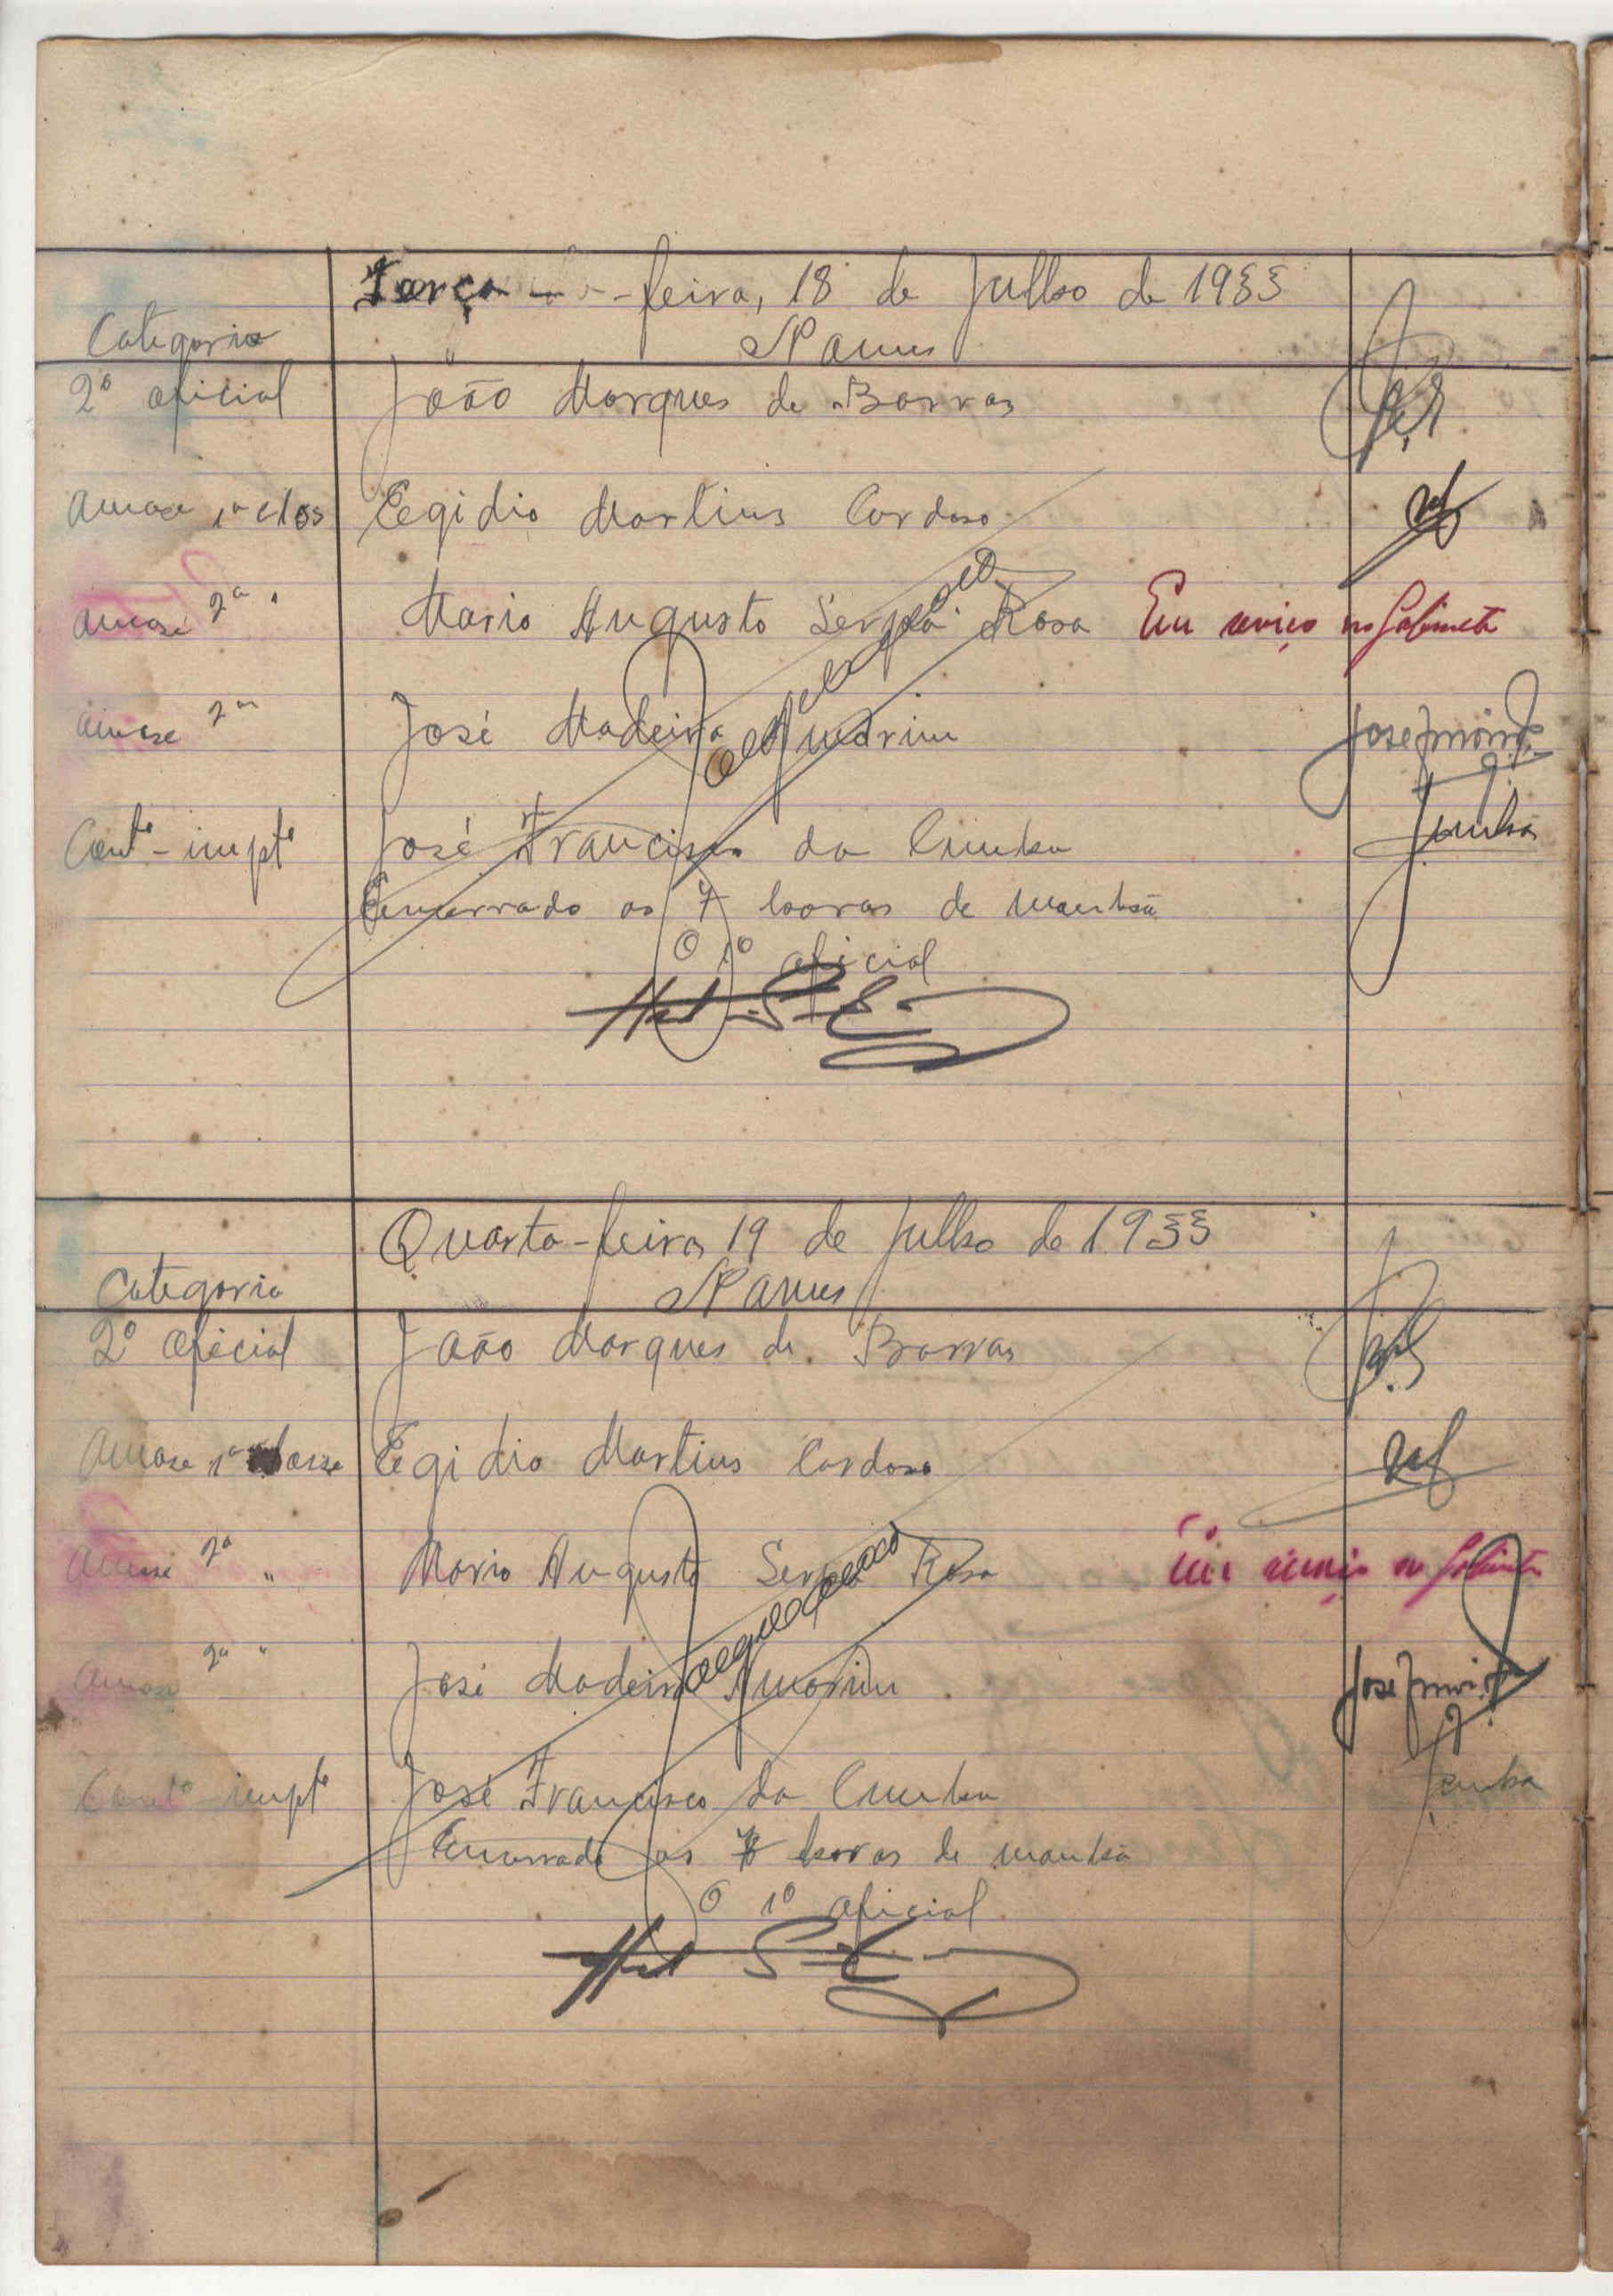 Terça-feira, 18 de Julho de 1933
Categoria Nomes
2º oficial João Marques de Barros
1ª clas Egidio Martins Cardoso
2ª " Mario Augusto Serpa Rosa Em serviço no Gabinete
2ª " José Madeira Amorim José Amorim
Contº impº José Francisco da Cunha Cunha
Encerrado as 7 horas de manhã
O 1º oficial
Quarta-feira, 19 de Julho de 1933
Categoria Nomes
2º oficial João Marques de Barros
1ª classe Egidio Martins Cardoso
2ª " Mario Augusto Serpa Rosa Em serviço no Gabinete
2ª " José Madeira Amorim José Amorim
Contº impº José Francisco da Cunha Cunha
Encerrado as 7 horas de manhã
O 1º oficial